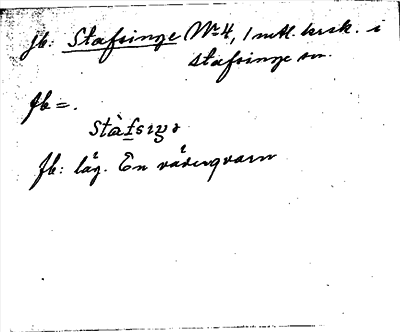 Jb: Stafsinge Nº 4, 1 mtl krsk. i
Stafsinge sn.
Jb =.
stàfsıŋə
Jb: låg. En väderqvarn